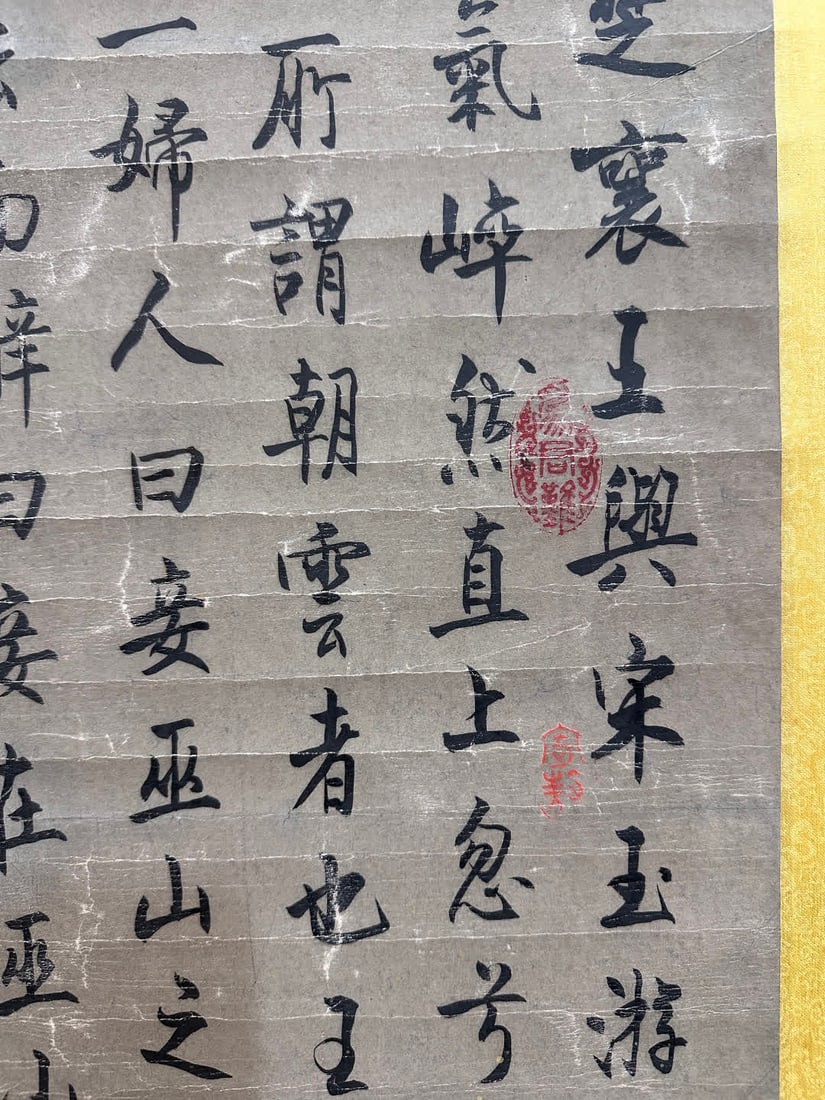 襄王與宋玉游
氣崪然直上忽兮
所謂朝雲者也王
一婦人曰妾巫山之
辤曰妾在巫山